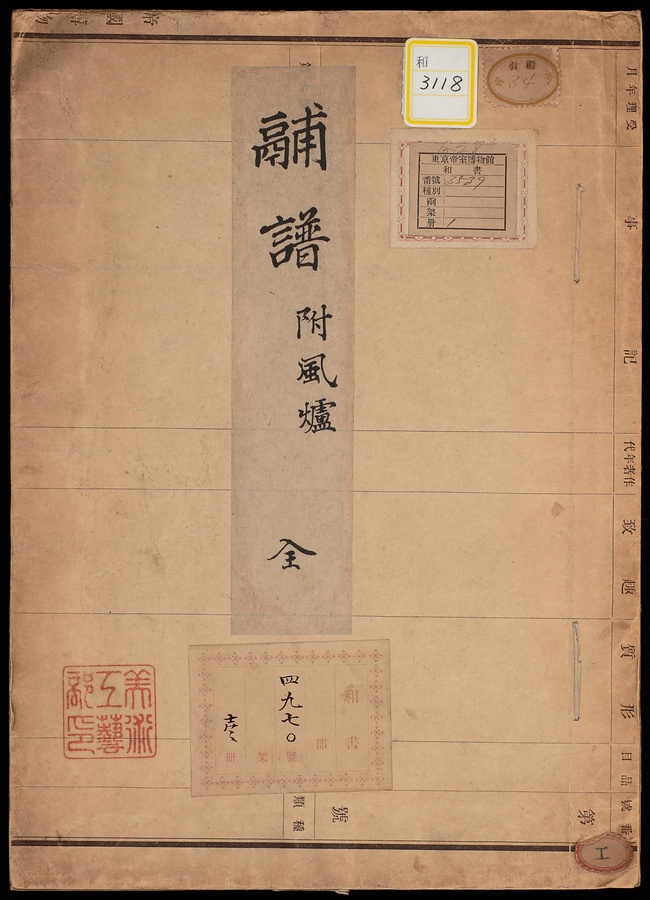 鬴
譜
附風爐
全
和
3118
34
東京帝室博物館
和書
番號 3539
種別
函
架
册 1
和書
部
四九七〇
號
架
壱
冊
美術
工藝
部印
受理年月
記事
作者年代
致趣
質
形
品目
番號
第
號
種類
工